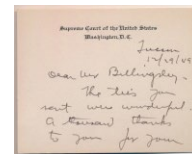 Supreme Court of the United States
Washington, D.C.
Tucson
12/29/69
Dear Mr Billingsley -
The ties you
sent were wonderful
a thousand thanks
to you for your